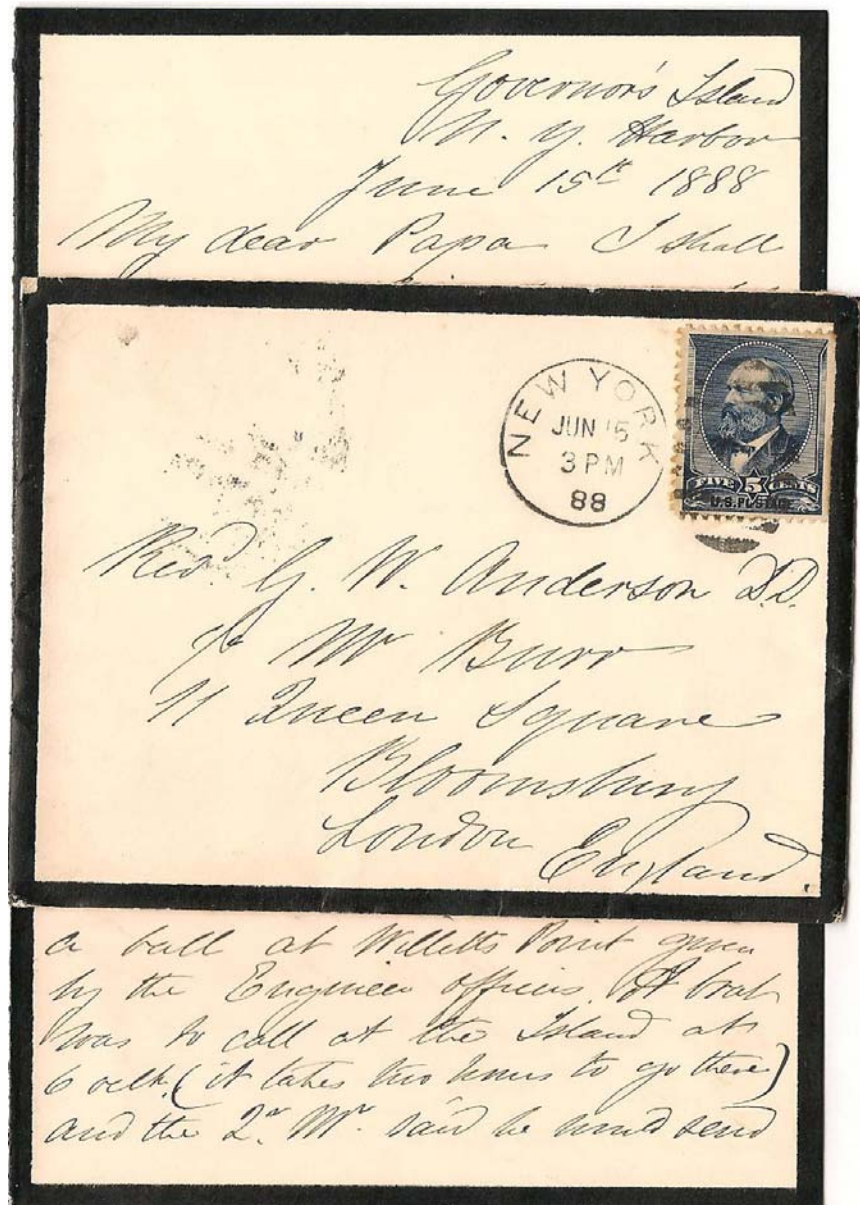 Governor's Island
N. Y. Harbor
June 15th 1888
My dear Papa I shall
NEW YORK
JUN 15
3 PM
88
FIVE 5 CENTS
U.S. POSTAGE
Revd G. W. Anderson D.D.
Mr Burr
11 Queen Square
Bloomsbury
London England.
a ball at Willetts Point given
by the Engineer officers. A boat
was to call at the Island at
6 oclk. (it takes two hours to go there)
and the 2d Mr. said he would send